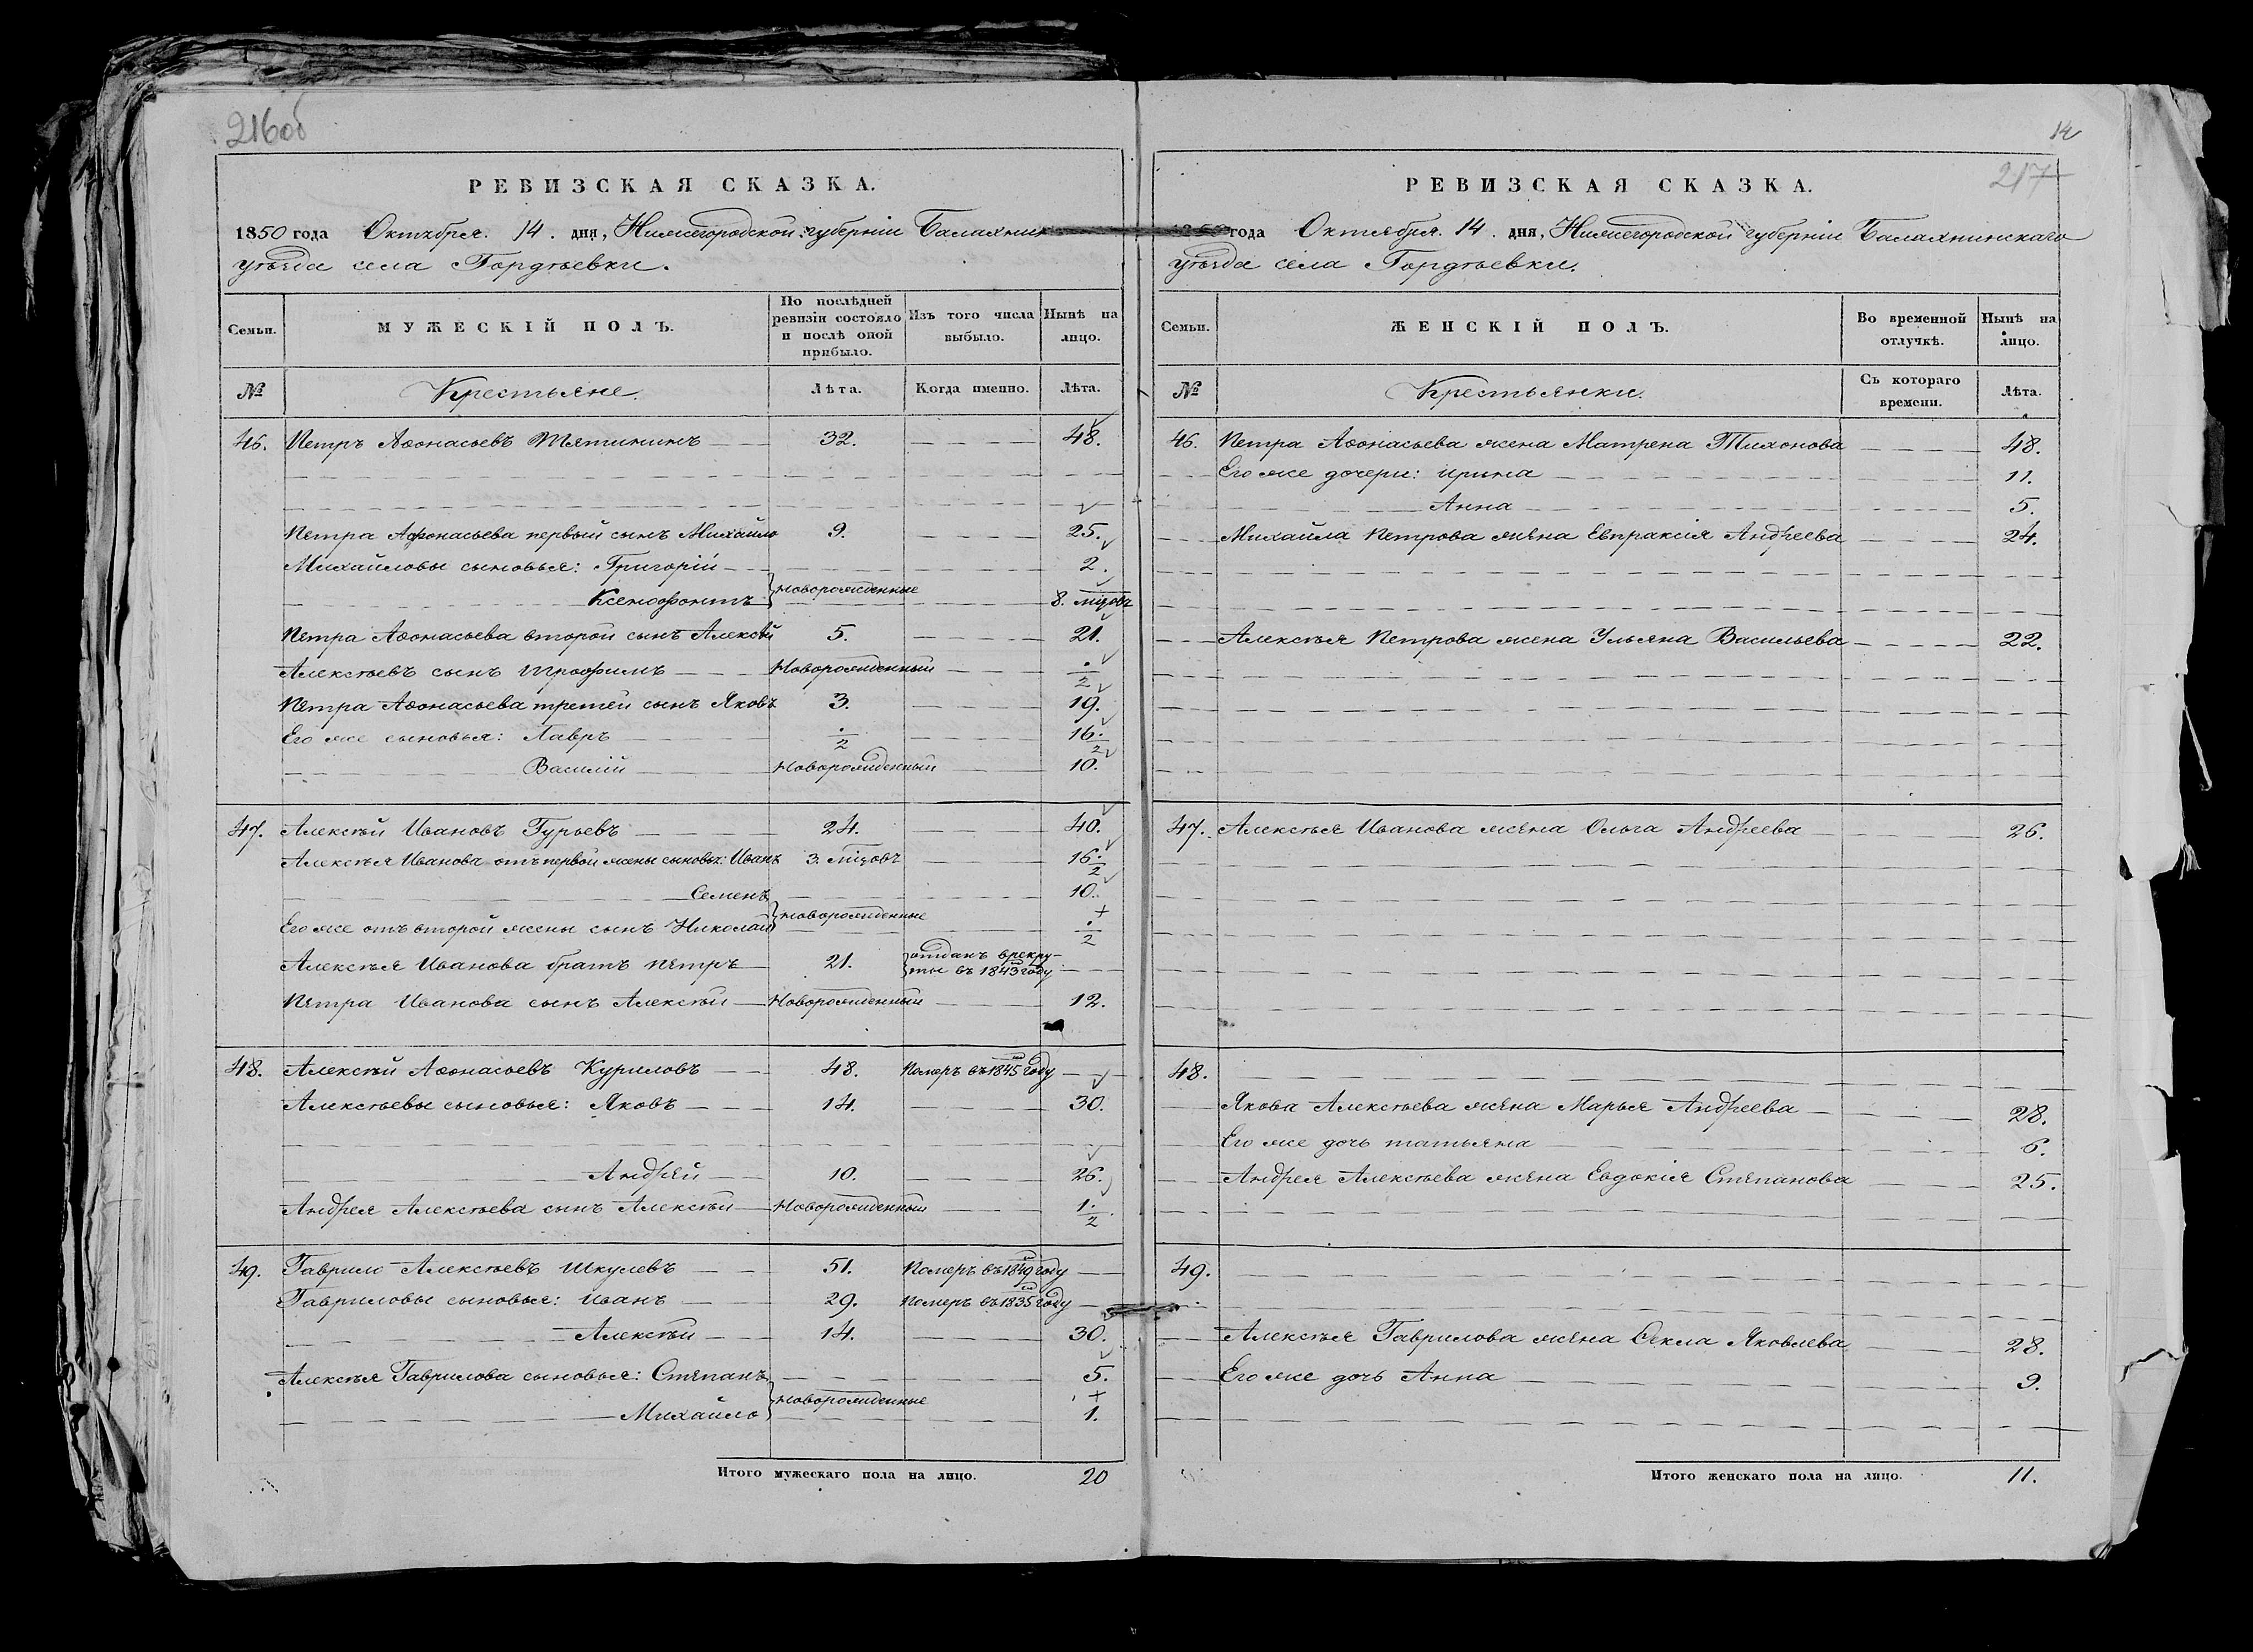 216об
РЕВИЗСКАЯ СКАЗКА.
1850 года Октября 14. дня, Нижегородской губерніи Балахнин
уѣзда села Гордѣевки.
Семьи. МУЖЕСКІЙ ПОЛЪ. По послѣдней ревизіи состояло и послѣ оной прибыло. Изъ того числа выбыло. Нынѣ на лицо.
№ Крестьяне. Лѣта. Когда именно. Лѣта.
46. Петръ Аѳонасьевъ Тятининъ 32. 48.
Петра Афонасьева первый сынъ Михайло 9. 25.
Михайловы сыновья: Григорій 2.
новорожденные
Ксенофонтъ 8. мцовъ
Петра Аѳонасьева второй сынъ Алексѣй 5. 21.
Алексѣевъ сынъ Трофимъ Новорожденный ./2
Петра Аѳонасьева третей сынъ Яковъ 3. 19.
Его же сыновья: Лавръ ./2 16./2
Василій Новорожденный 10.
47. Алексѣй Ивановъ Гурьевъ 24. 40.
Алексѣя Иванова отъ первой жены сыновья: Иванъ 3. мцовъ 16./2
Семенъ 10.
новорожденные
Его же отъ второй жены сынъ Николай ./2
Алексѣя Иванова братъ Петръ 21. отданъ в рекру-
ты въ 1843 году
Петра Иванова сынъ Алексѣй Новорожденный 12.
48. Алексѣй Аѳонасьевъ Куриловъ 48. Померъ въ 1845 году
Алексѣевы сыновья: Яковъ 14. 30.
Андрей 10. 26.
Андрея Алексѣева сынъ Алексѣй Новорожденный 1./2
49. Гаврило Алексѣевъ Шкулевъ 51. Померъ въ 1849 году
Гавриловы сыновья: Иванъ 29. Померъ въ 1835 году
Алексѣй 14. 30.
Алексѣя Гаврилова сыновья: Степанъ 5.
новорожденные
Михайло 1.
Итого мужескаго пола на лицо. 20
14
217
РЕВИЗСКАЯ СКАЗКА.
года Октября 14. дня, Нижегородской губерніи Балахнинскаго
уѣзда села Гордѣевки.
Семьи. ЖЕНСКІЙ ПОЛЪ. Во временной отлучкѣ. Нынѣ на лицо.
№ Крестьянки. Съ котораго времени. Лѣта.
46. Петра Аѳонасьева жена Матрена Тихонова 48.
Его же дочери: Ирина 11.
Анна 5.
Михайла Петрова жена Евпраксія Андреева 24.
Алексѣя Петрова жена Ульяна Васильева 22.
47. Алексѣя Иванова жена Ольга Андреева 26.
48.
Якова Алексѣева жена Марья Андреева 28.
Его же дочь татьяна 6.
Андрея Алексѣева жена Евдокія Степанова 25.
49.
Алексѣя Гаврилова жена Ѳекла Яковлева 28.
Его же дочь Анна 9.
Итого женскаго пола на лицо. 11.